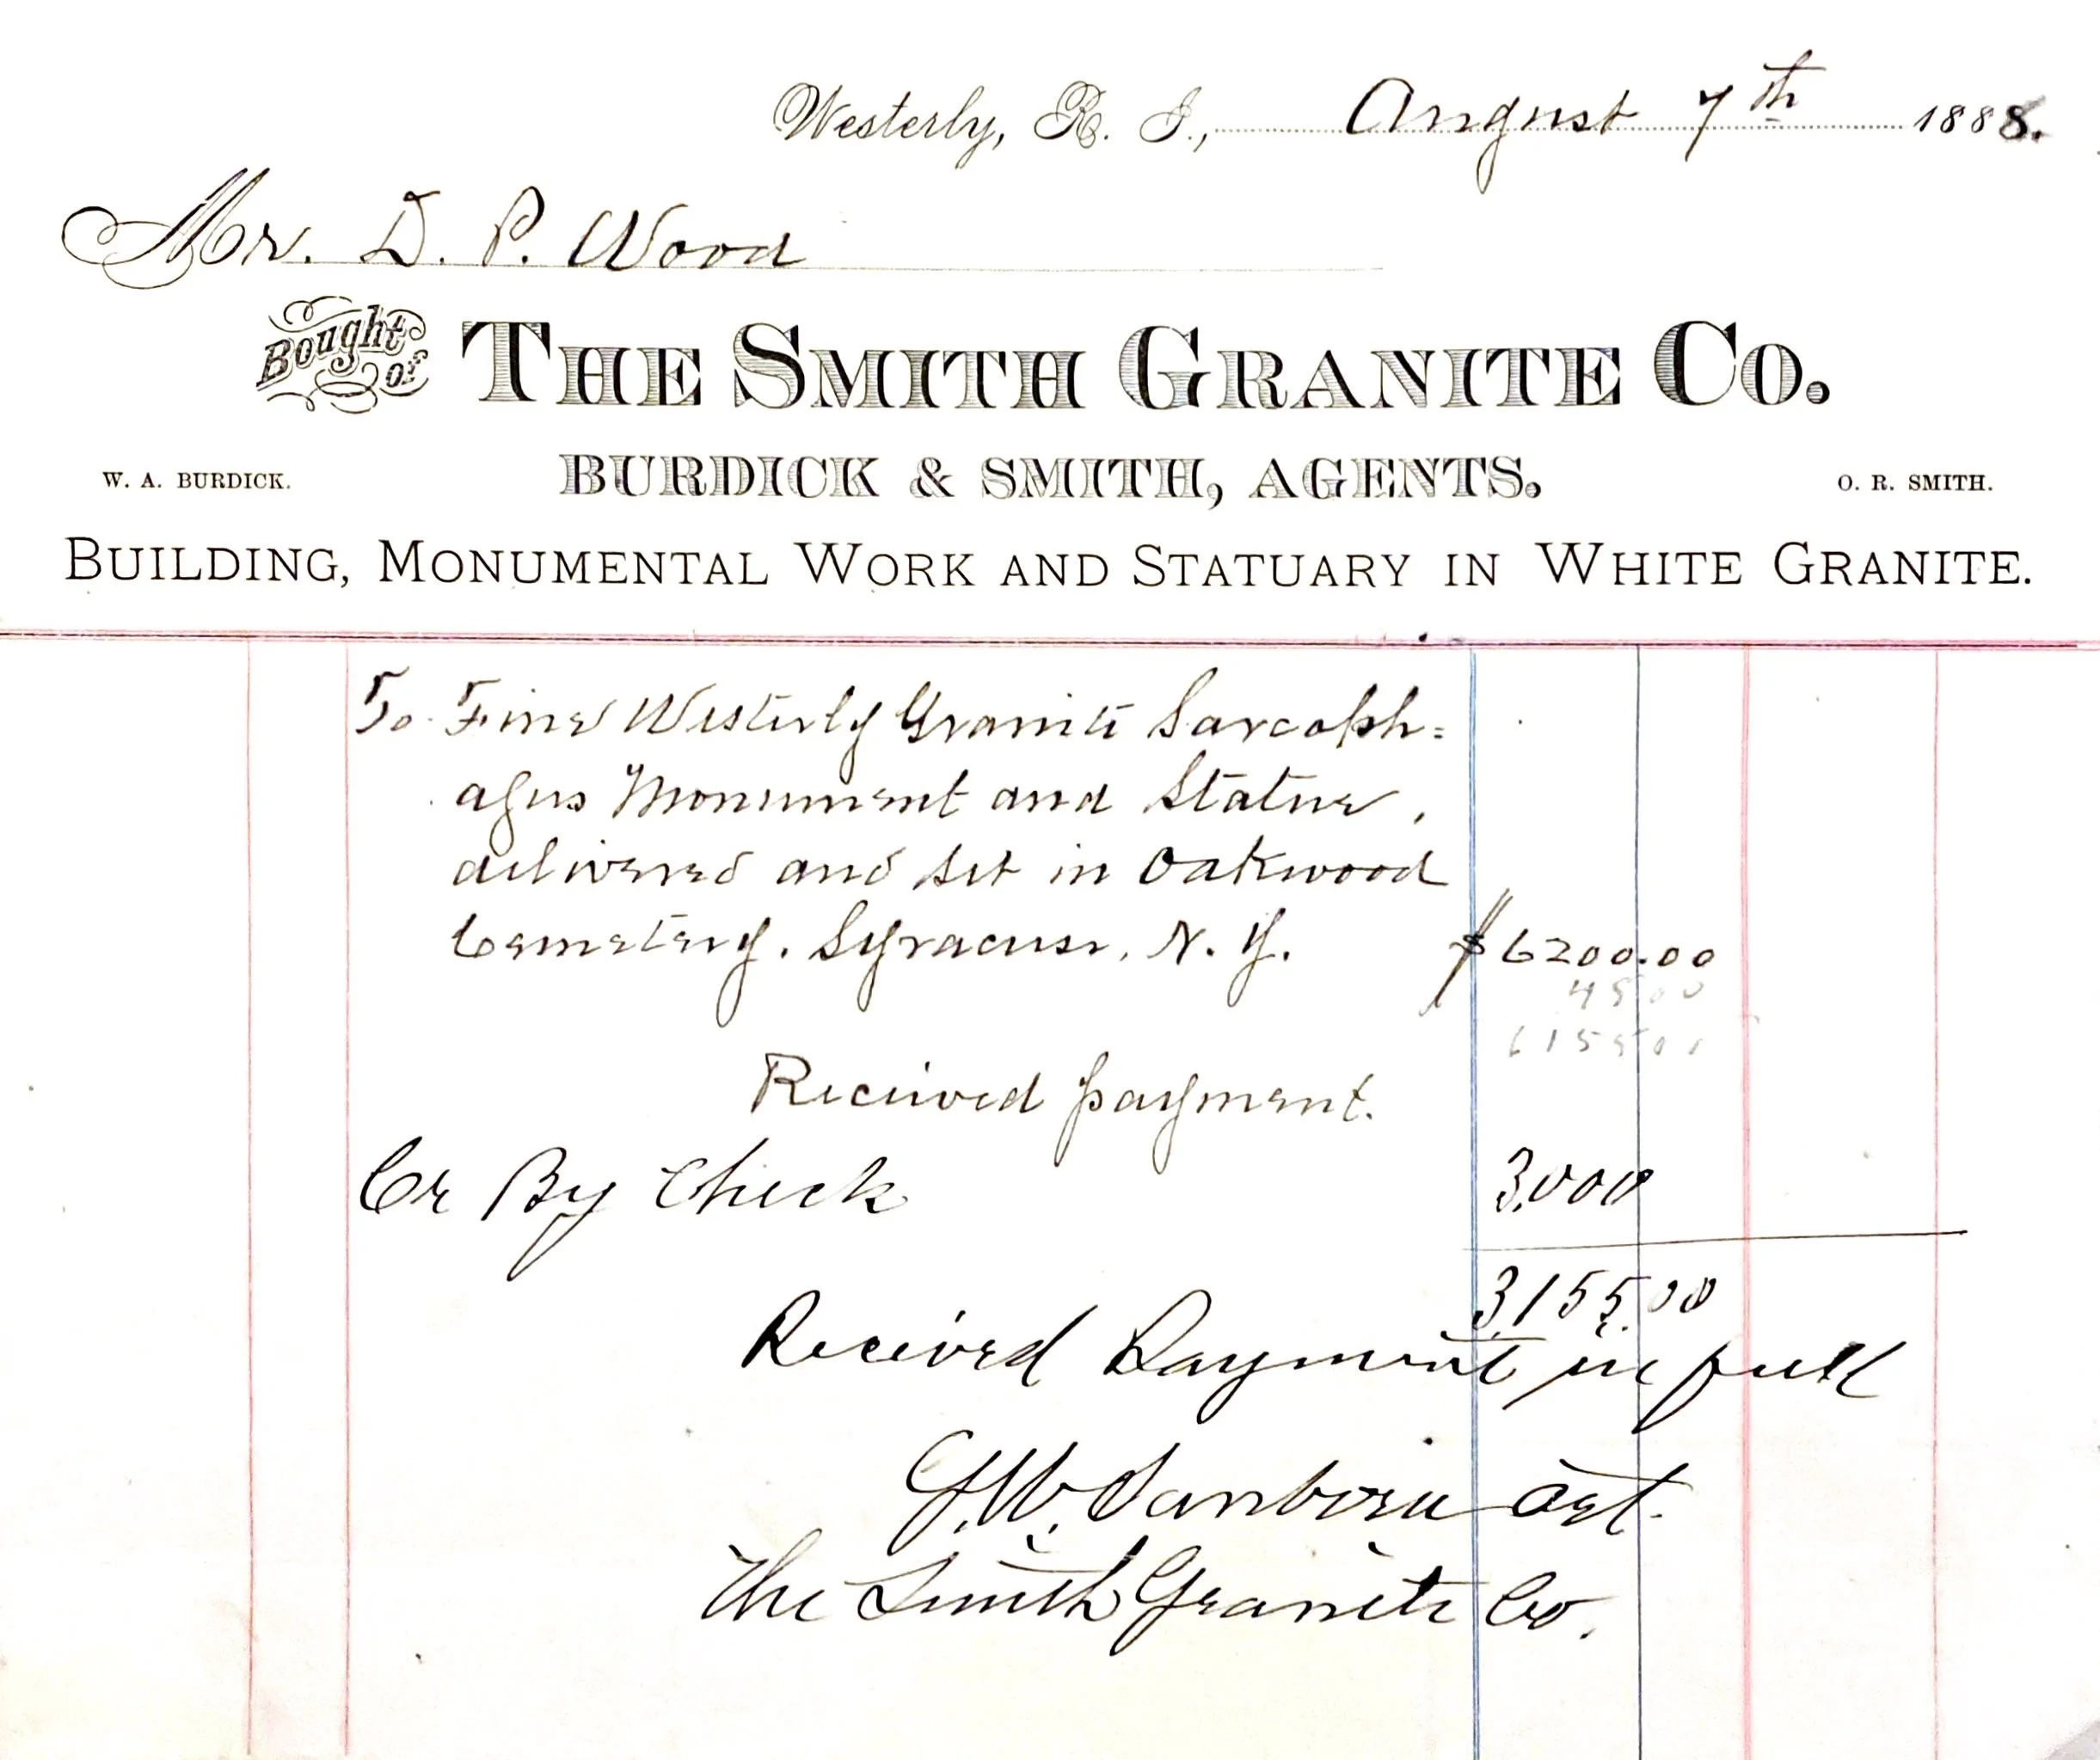 Westerly, R. I., August 7th 1888.
Mr. D. P. Wood
Bought of THE SMITH GRANITE CO.
W. A. BURDICK. BURDICK & SMITH, AGENTS. O. R. SMITH.
BUILDING, MONUMENTAL WORK AND STATUARY IN WHITE GRANITE.
To Fine Westerly Granite Sarcoph=
agus Monument and Statue,
delivered and set in Oakwood
Cemetery, Syracuse, N. Y. $6200.00
45 00
6155 00
Received payment.
Cr By Check 3,000
3,155.00
Received Payment in full
W. Sanborn agt.
The Smith Granite Co.